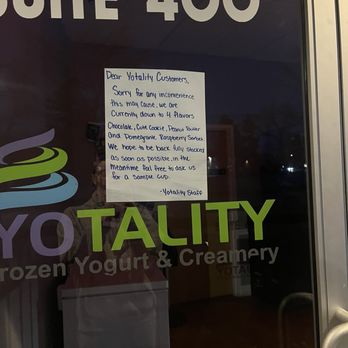 SUITE 400
Dear Yotality Customers,
Sorry for any inconvenience
this may cause, we are
Currently down to 4 flavors
Chocolate, Cute Cookie, Peanut Butter
and Pomegranate Raspberry Sorbet.
We hope to be back fully stocked
as soon as possible, in the
meantime feel free to ask us
for a sample cup.
-Yotality Staff
YOTALITY
Frozen Yogurt & Creamery